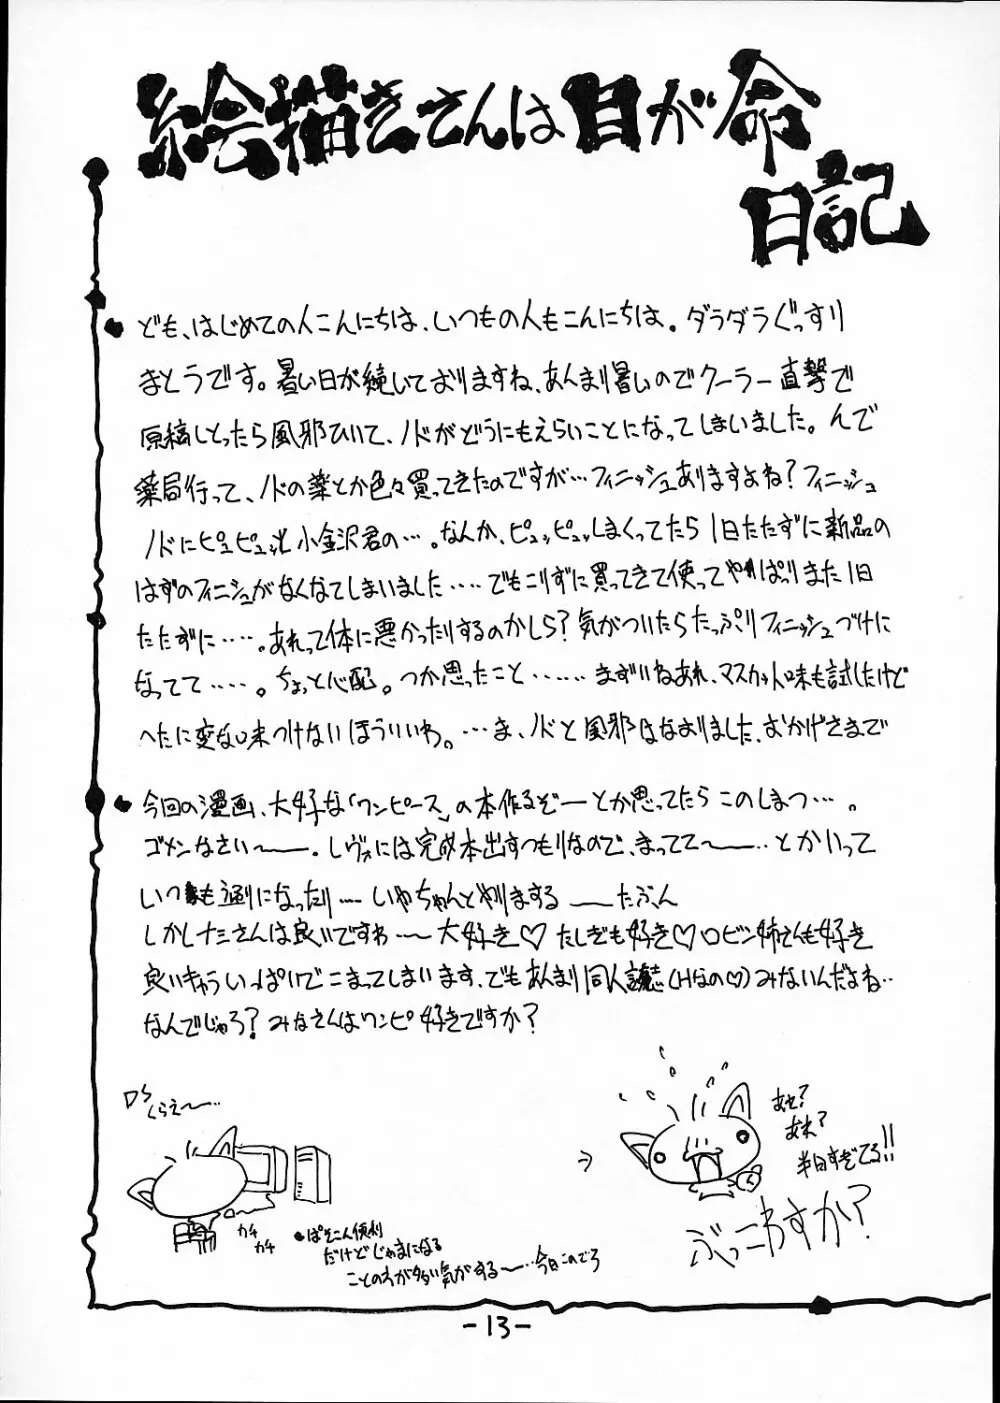 絵描きさんは目が命
日記
ども、はじめての人こんにちは、いつもの人もこんにちは。ダラダラぐっすり
まとうです。暑い日が続いておりますね、あんまり暑いのでクーラー直撃で
原稿しとったら風邪ひいて、ノドがどうにもえらいことになってしまいました。んで
薬局行って、ノドの薬とか色々買ってきたのですが…フィニッシュありますよね？フィニッシュ
ノドにピュピュッと小金沢君の…。なんか、ピュッピュッしまくってたら1日たたずに新品の
はずのフィニシュがなくなてしまいました‥‥でもこりずに買ってきて使ってやっぱりまた1日
たたずに‥‥。あれって体に悪かったりするのかしら？気がついたらたっぷりフィニッシュづけに
なってて‥‥。ちょっと心配。つか思ったこと‥‥‥まずいねあれ、マスカット味も試したけど
へたに変な味つけないほういいわ。…ま、ノドと風邪はなおりました、おかげさまで
今回の漫画、大好な「ワンピース」の本作るぞーとか思ってたらこのしまつ…。
ゴメンなさい〜。レヴォには完成本出すつもりなので、まってて〜‥とかいって
いつも通りになったり‥‥いやちゃんとやりまする――たぶん
しかしナミさんは良いですわ〜大好き♡たしぎも好き♡ロビン姉さんも好き
良いきゃらいっぱいでこまってしまいます、でもあんまり同人誌(Hなの♡)みないんだよね‥
なんでじゃろ？みなさんはワンピ好きですか？
くらえ〜‥
カチ
カチ
ぱそこん便利
だけどじゃまになる
ことのわが多い気がする〜‥今日このごろ
あせ？
あれ？
半日すぎてる!!
ぶっこわすか？
-13-